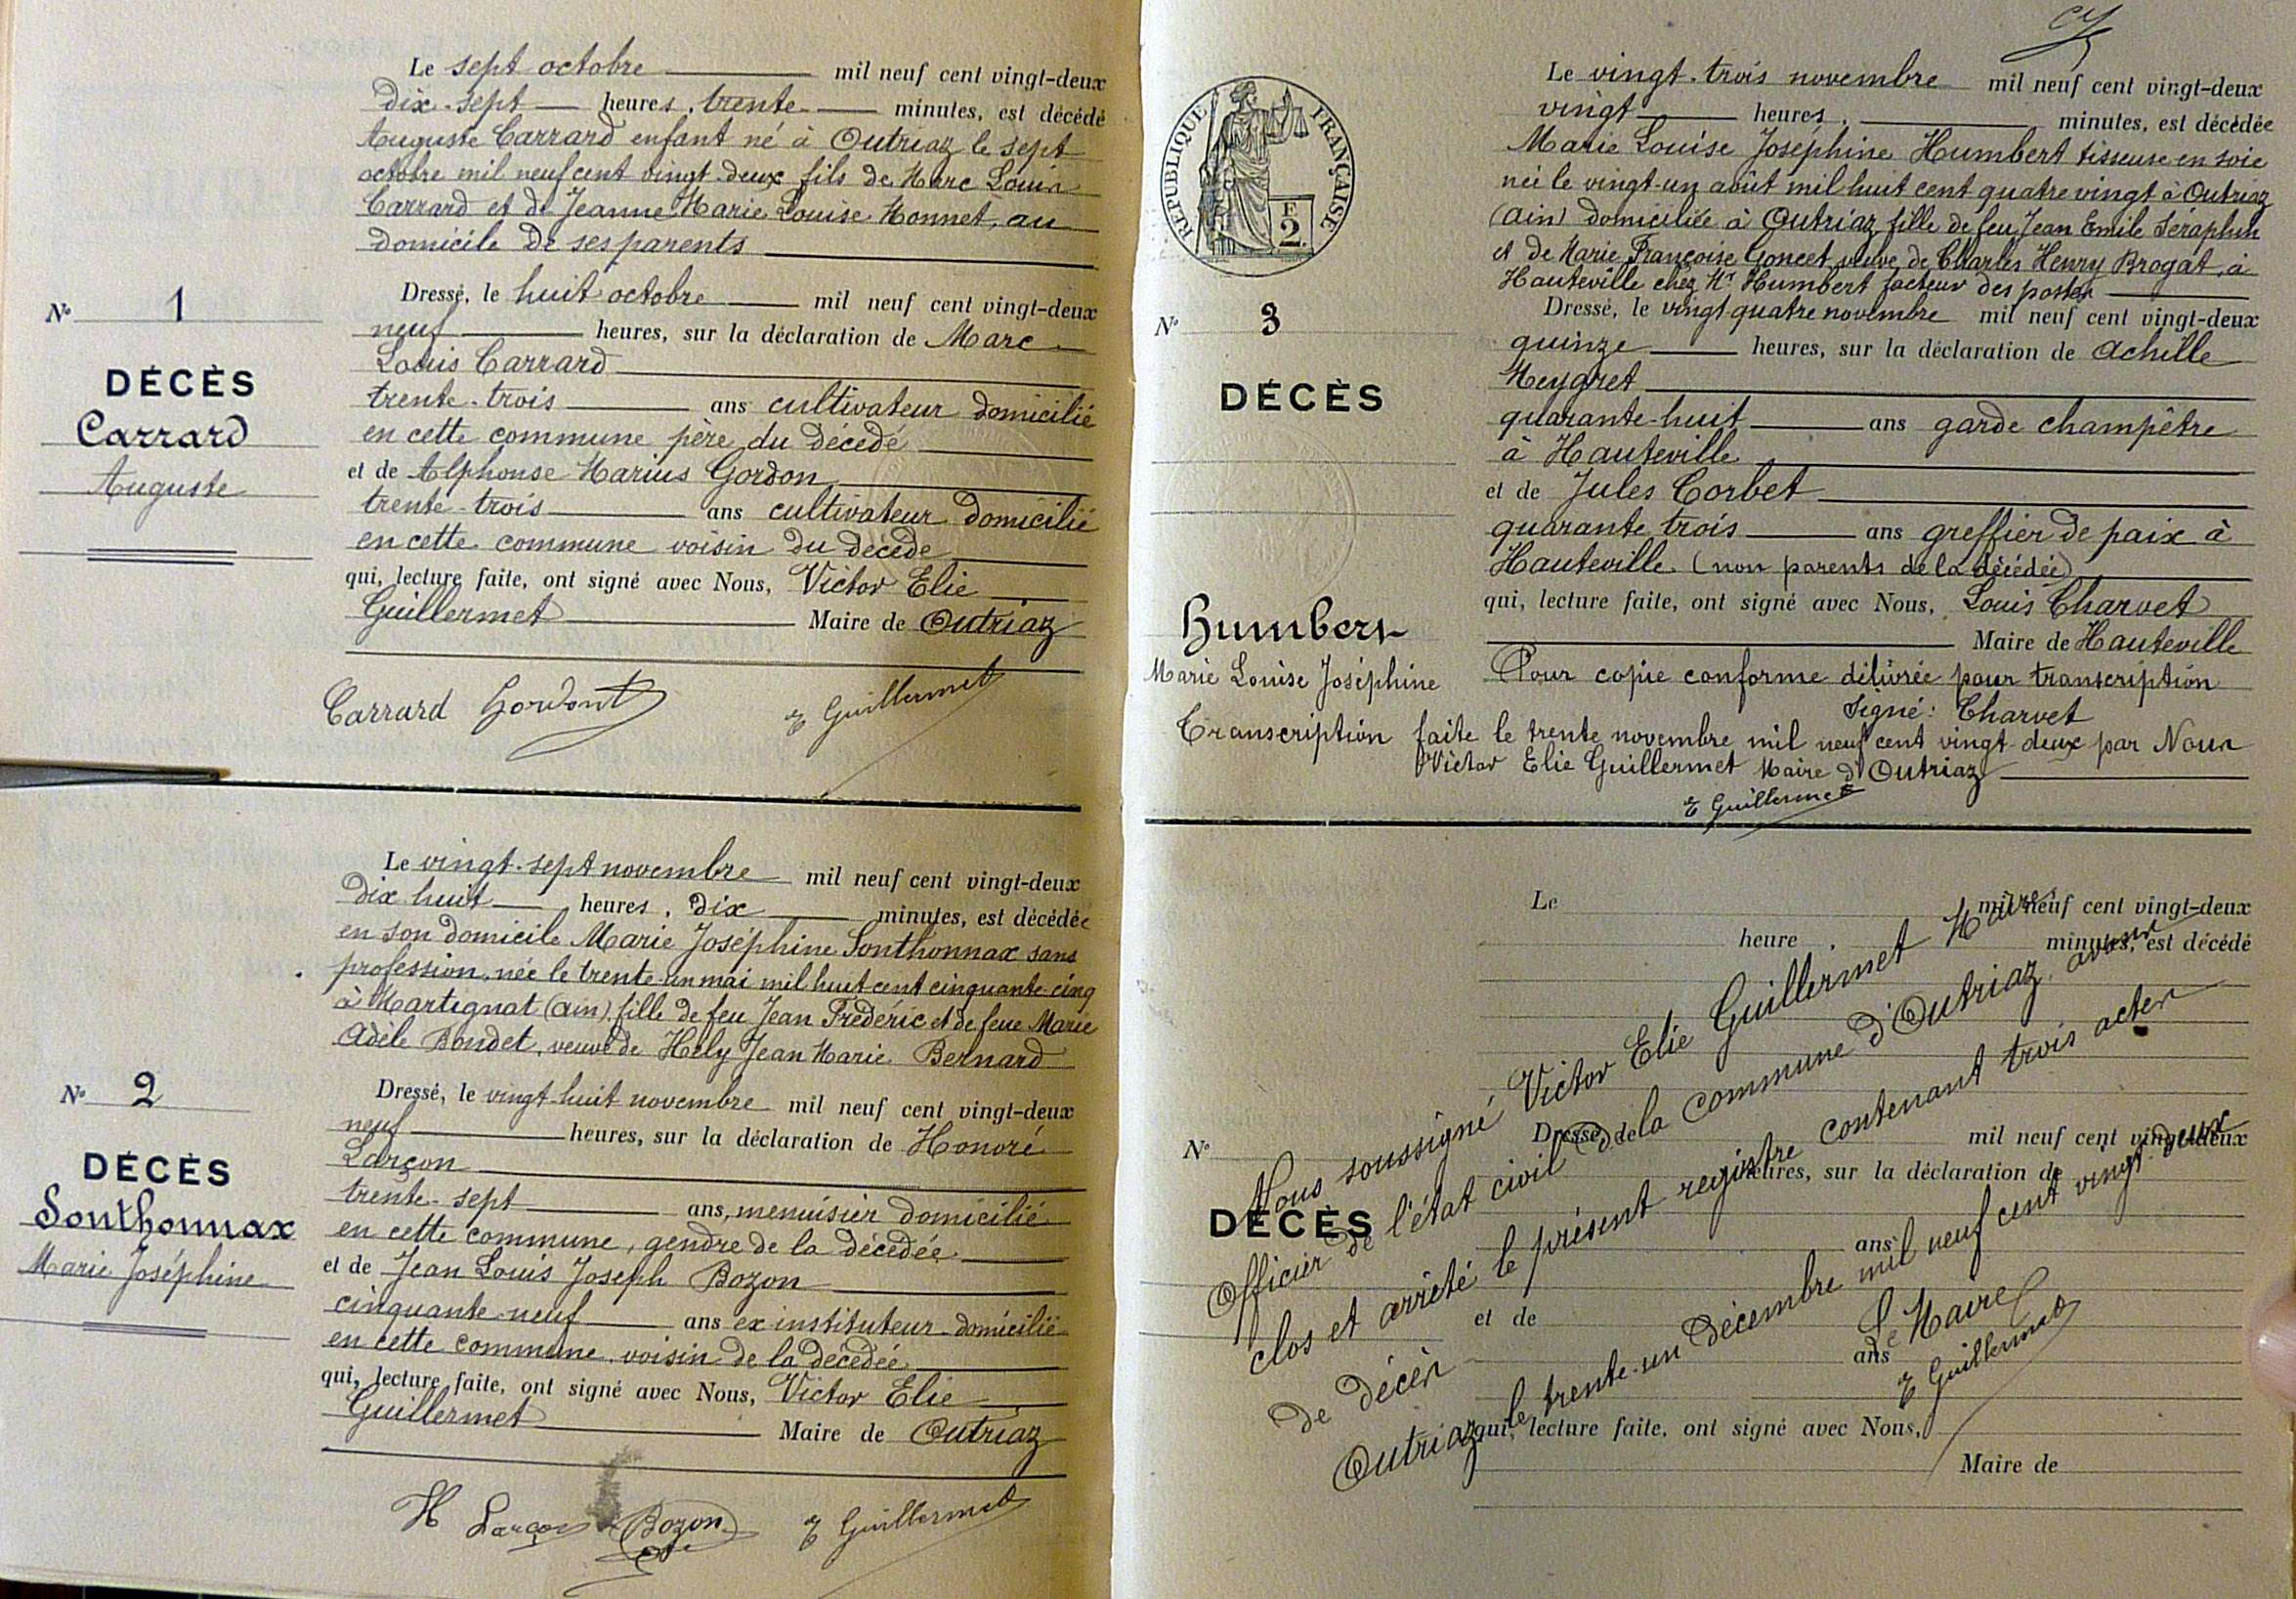 Le sept octobre mil neuf cent vingt-deux
dix-sept heures, trente minutes, est décédé
Auguste Carrard enfant né à Outriaz le sept
octobre mil neuf cent vingt-deux fils de Marc Louis
Carrard et de Jeanne Marie Louise Monnet, au
domicile de ses parents
Dressé, le huit octobre mil neuf cent vingt-deux
neuf heures, sur la déclaration de Marc
Louis Carrard
trente-trois ans cultivateur domicilié
en cette commune père du décédé
et de Alphonse Marius Gordon
trente-trois ans cultivateur domicilié
en cette commune voisin du décédé
qui, lecture faite, ont signé avec Nous, Victor Elie
Guillermet Maire de Outriaz
N° 1
DÉCÈS
Carrard
Auguste
Carrard E Guillermet
Le vingt-sept novembre mil neuf cent vingt-deux
dix huit heures, dix minutes, est décédée
en son domicile Marie Joséphine Sonthonnax sans
profession, née le trente-un mai mil huit cent cinquante-cinq
à Martignat (Ain), fille de feu Jean Frédéric et de feue Marie
Adèle Bondet, veuve de Hély Jean Marie Bernard
Dressé, le vingt-huit novembre mil neuf cent vingt-deux
neuf heures, sur la déclaration de Honoré
Larçon
trente-sept ans, menuisier domicilié
en cette commune, gendre de la décédée
et de Jean Louis Joseph Bozon
cinquante-neuf ans ex instituteur domicilié
en cette commune, voisin de la décédée
qui, lecture faite, ont signé avec Nous, Victor Elie
Guillermet Maire de Outriaz
N° 2
DÉCÈS
Sonthonnax
Marie Joséphine
H Larçon Bozon E Guillermet
RÉPUBLIQUE FRANÇAISE
F
2
Le vingt-trois novembre mil neuf cent vingt-deux
vingt heures, minutes, est décédée
Marie Louise Joséphine Humbert tisseuse en soie
née le vingt-un août mil huit cent quatre vingt à Outriaz
(Ain) domiciliée à Outriaz fille de feu Jean Emile Séraphin
et de Marie Françoise Goncet, veuve de Charles Henry Brogat, à
Hauteville chez Mr Humbert facteur des postes
Dressé, le vingt quatre novembre mil neuf cent vingt-deux
quinze heures, sur la déclaration de Achille
Meygret
quarante-huit ans garde champêtre
à Hauteville
et de Jules Corbet
quarante trois ans greffier de paix à
Hauteville (non parents de la décédée)
qui, lecture faite, ont signé avec Nous, Louis Charvet
Maire de Hauteville
N° 3
DÉCÈS
Humbert
Marie Louise Joséphine
Pour copie conforme délivrée pour transcription
Signé: Charvet
Transcription faite le trente novembre mil neuf cent vingt-deux par Nous
Victor Elie Guillermet Maire d'Outriaz
E Guillermet
Le mil neuf cent vingt-deux
heure , minutes, est décédé
Dressé, le mil neuf cent vingt-deux
heures, sur la déclaration de
ans
et de
ans
qui, lecture faite, ont signé avec Nous,
Maire de
N°
DÉCÈS
Nous soussigné Victor Elie Guillermet Maire
Officier de l'état civil de la commune d'Outriaz, avons
clos et arrêté le présent registre contenant trois actes
de décès
Outriaz, le trente-un décembre mil neuf cent vingt-deux
Le Maire
E Guillermet